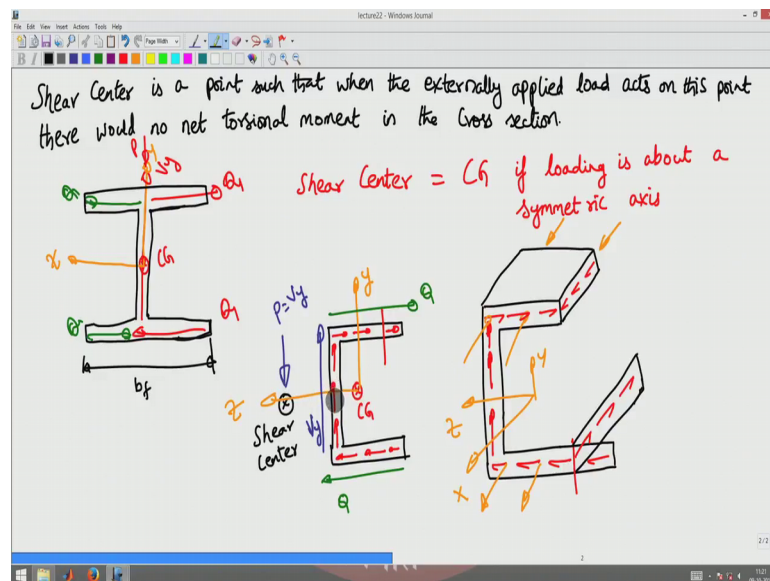 lecture22 - Windows Journal
File Edit View Insert Actions Tools Help
Page Width
B I
Shear Center is a point such that when the externally applied load acts on this point
there would no net torsional moment in the Cross section.
P
y
Vy
Q1
z
CG
Q1
bf
Shear Center = CG if loading is about a
symmetric axis
P=Vy
y
Q
z
CG
Shear
Center
Vy
Q
y
z
x
2/2
2
11:21